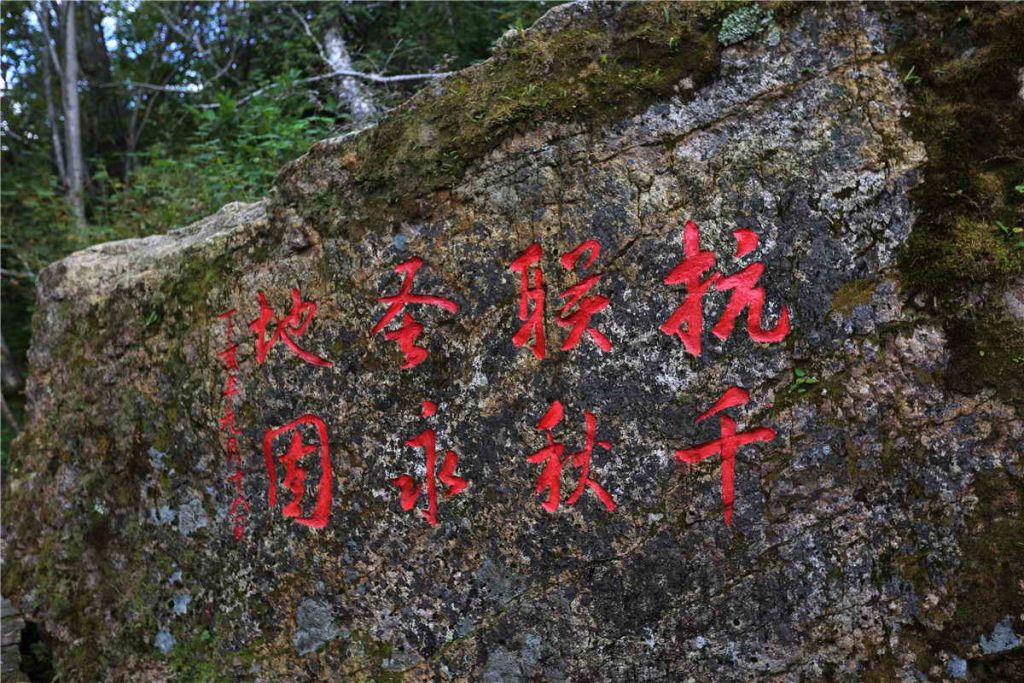 抗联圣地
千秋永固
丁亥年九月十八日